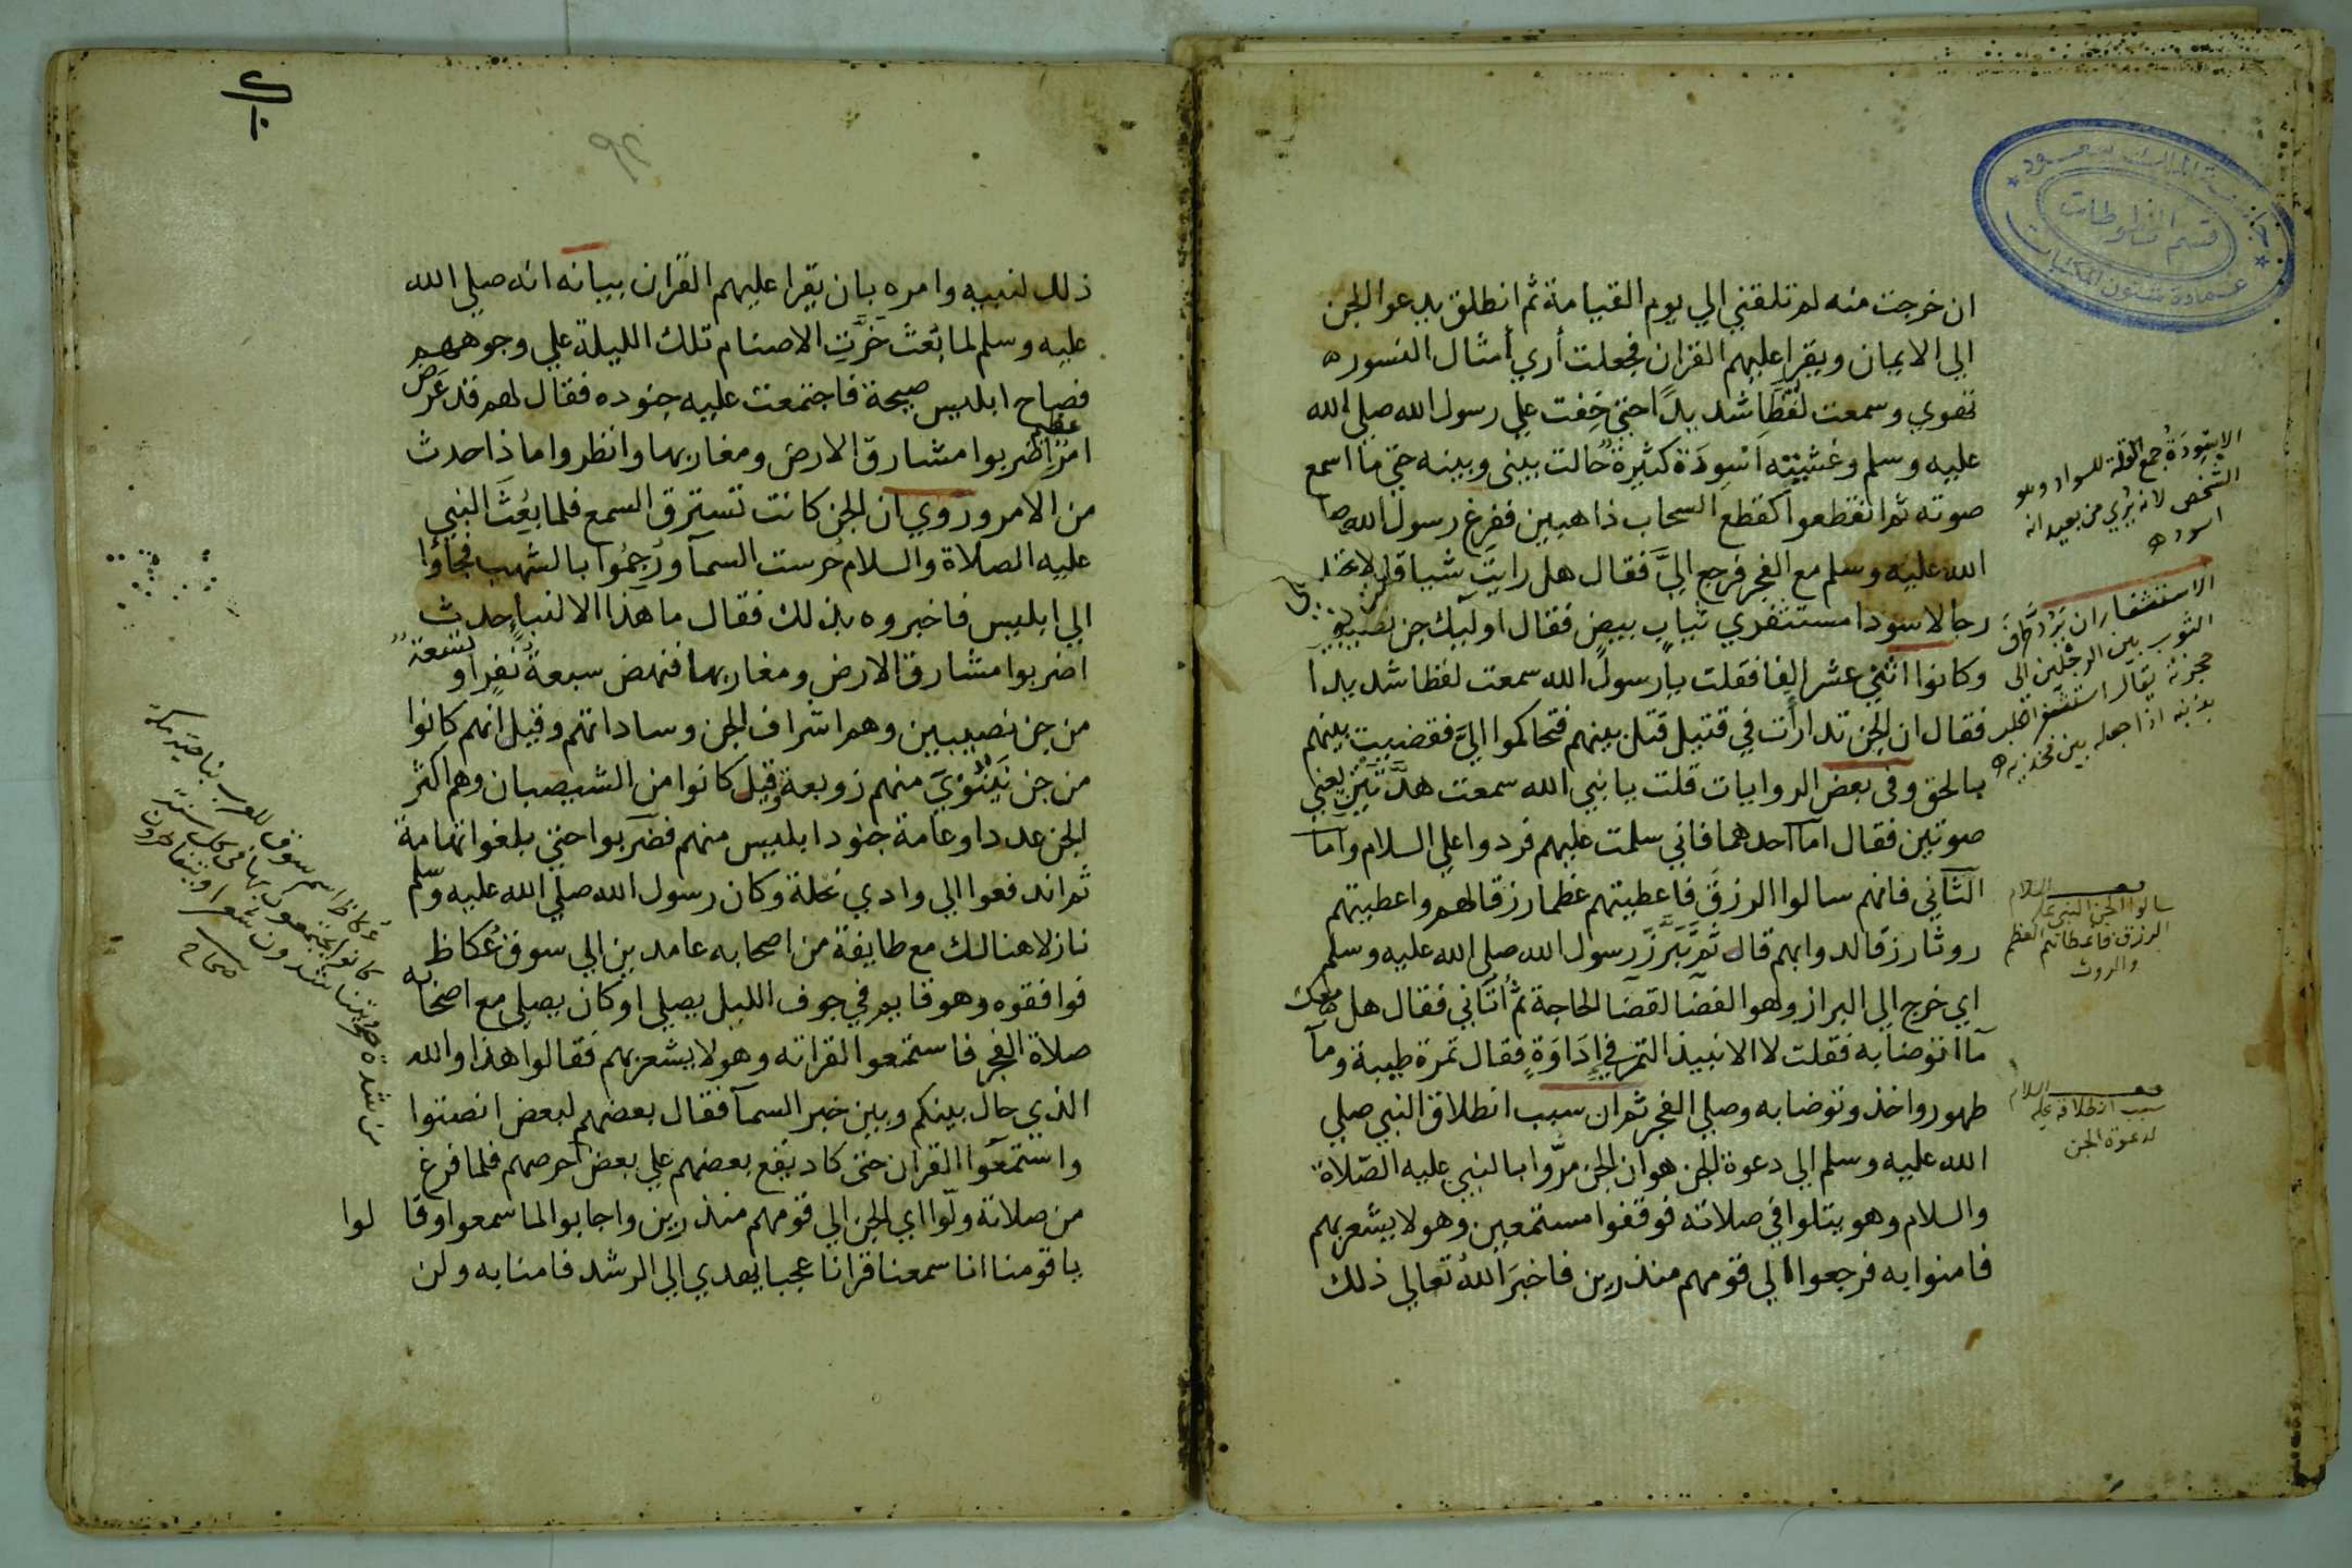 ان خرجت منه لم تلقني الي يوم القيامة ثم انطلق يدعوا الجن
الي الايمان ويقرا عليهم القران فجعلت أري أمثال النسور
تهوي وسمعت لغطا شديدًا حتي خفت علي رسول الله صلي الله
عليه وسلم وغشيته اسودة كثيرة حالت بيني وبينه حتي ما اسمع
صوته ثم انقطعوا كقطع السحاب ذاهبين ففرغ رسول الله صلى
الله عليه وسلم مع الفجر فرجع اليَّ فقال هل رايت شيا قلت
رجالا سودا مستثفري ثياب بيض فقال اوليك جن نصيبين
وكانوا اثني عشر الفا فقلت يا رسول الله سمعت لغطا شديدا
فقال ان الجن تدارأت في قتيل قتل بينهم فتحاكموا اليَّ فقضيت بينهم
بالحق وفى بعض الروايات قلت يا نبي الله سمعت هدَّتين يعني
صوتين فقال اما احدهما فاني سلمت عليهم فردوا علي السلام واما
الثاني فانهم سالوا الرزق فاعطيتهم عظما رزقا لهم واعطيتهم
روثا رزقا لدوابهم قال ثم تبرَّز رسول الله صلي الله عليه وسلم
اي خرج الي البراز وهو الفضا لقضا الحاجة ثم أتاني فقال هل معك
مآ اتوضا به فقلت لا الا نبيذ التمر في إداوةٍ فقال تمرة طيبة ومآ
طهور واخذ وتوضا به وصلي الفجر ثم ان سبب انطلاق النبي صلي
الله عليه وسلم الي دعوة الجن هو ان الجن مرُّوا بالنبي عليه الصلاة
والسلام وهو يتلوا في صلاته فوقفوا مستمعين وهو لا يشعر بهم
فامنوا به فرجعوا الي قومهم منذرين فاخبرَ اللهُ تعالي ذلك
الاسودَةُ جمع القلة للسواد وهو
الشخص لانه يُري من بعيد انه
اسود
الاستثفار ان تردّ طرف
الثوب بين الرجلين الى
حجزته يقال استثفر الكلب
بذنبه اذا جعله بين فخذيه
سالوا الجن النبي عليه السلام
الرزق فاعطاهم العظم
والروث
سبب انطلاقه عليه السلام
لدعوة الجن
قسم المخطوطات
عمادة شئون المكتبات
ذلك لنبيه وامره بان يقرا عليهم القران بيانه انه صلي الله
عليه وسلم لما بُعث خرَّتِ الاصنام تلك الليلة علي وجوههم
فصاح ابليس صيحة فاجتمعت عليه جنوده فقال لهم قد عَرض
امر عظيم اضربوا مشارق الارض ومغاربها وانظروا ماذا حدث
من الامر ورُوي ان الجن كانت تسترق السمع فلما بُعثَ النبي
عليه الصلاة والسلام حُرست السمآ ورُجمُوا بالشهب فجاؤا
الي ابليس فاخبروه بذلك فقال ما هذا الا لنبا حدث
اضربوا مشارق الارض ومغاربها فنهض سبعة نفرٍ او تسعة
من جن نصيبين وهم اشراف الجن وساداتهم وقيل انهم كانوا
من جن نَينَوَيَ منهم زوبعة وقيل كانوا من الشيصبان وهم اكثر
الجن عددا وعامة جنود ابليس منهم فضربوا حتي بلغوا تهامة
ثم اندفعوا الي وادي نخلة وكان رسول الله صلي الله عليه وسلم
نازلا هنالك مع طايفة من اصحابه عامدين الي سوق عُكاظ
فوافقوه وهو قايم في جوف الليل يصلي او كان يصلي مع اصحابه
صلاة الفجر فاستمعوا لقراته وهو لا يشعر بهم فقالوا هذا والله
الذي حال بينكم وبين خبر السمآ فقال بعضهم لبعض انصتوا
واستمعوا القران حتى كاد يقع بعضهم علي بعض أحرصهم فلما فرغ
من صلاته ولّوا اي الجن الي قومهم منذرين واجابوا لما سمعوا وقالوا
يا قومنا انا سمعنا قرانا عجبا يهدي الي الرشد فامنا به ولن
عُكاظ اسم سوق للعرب بناحية مكة
كانوا يجتمعون بها في كل سنة
ويتناشدون شعرا ويتفاخرون
صحاح